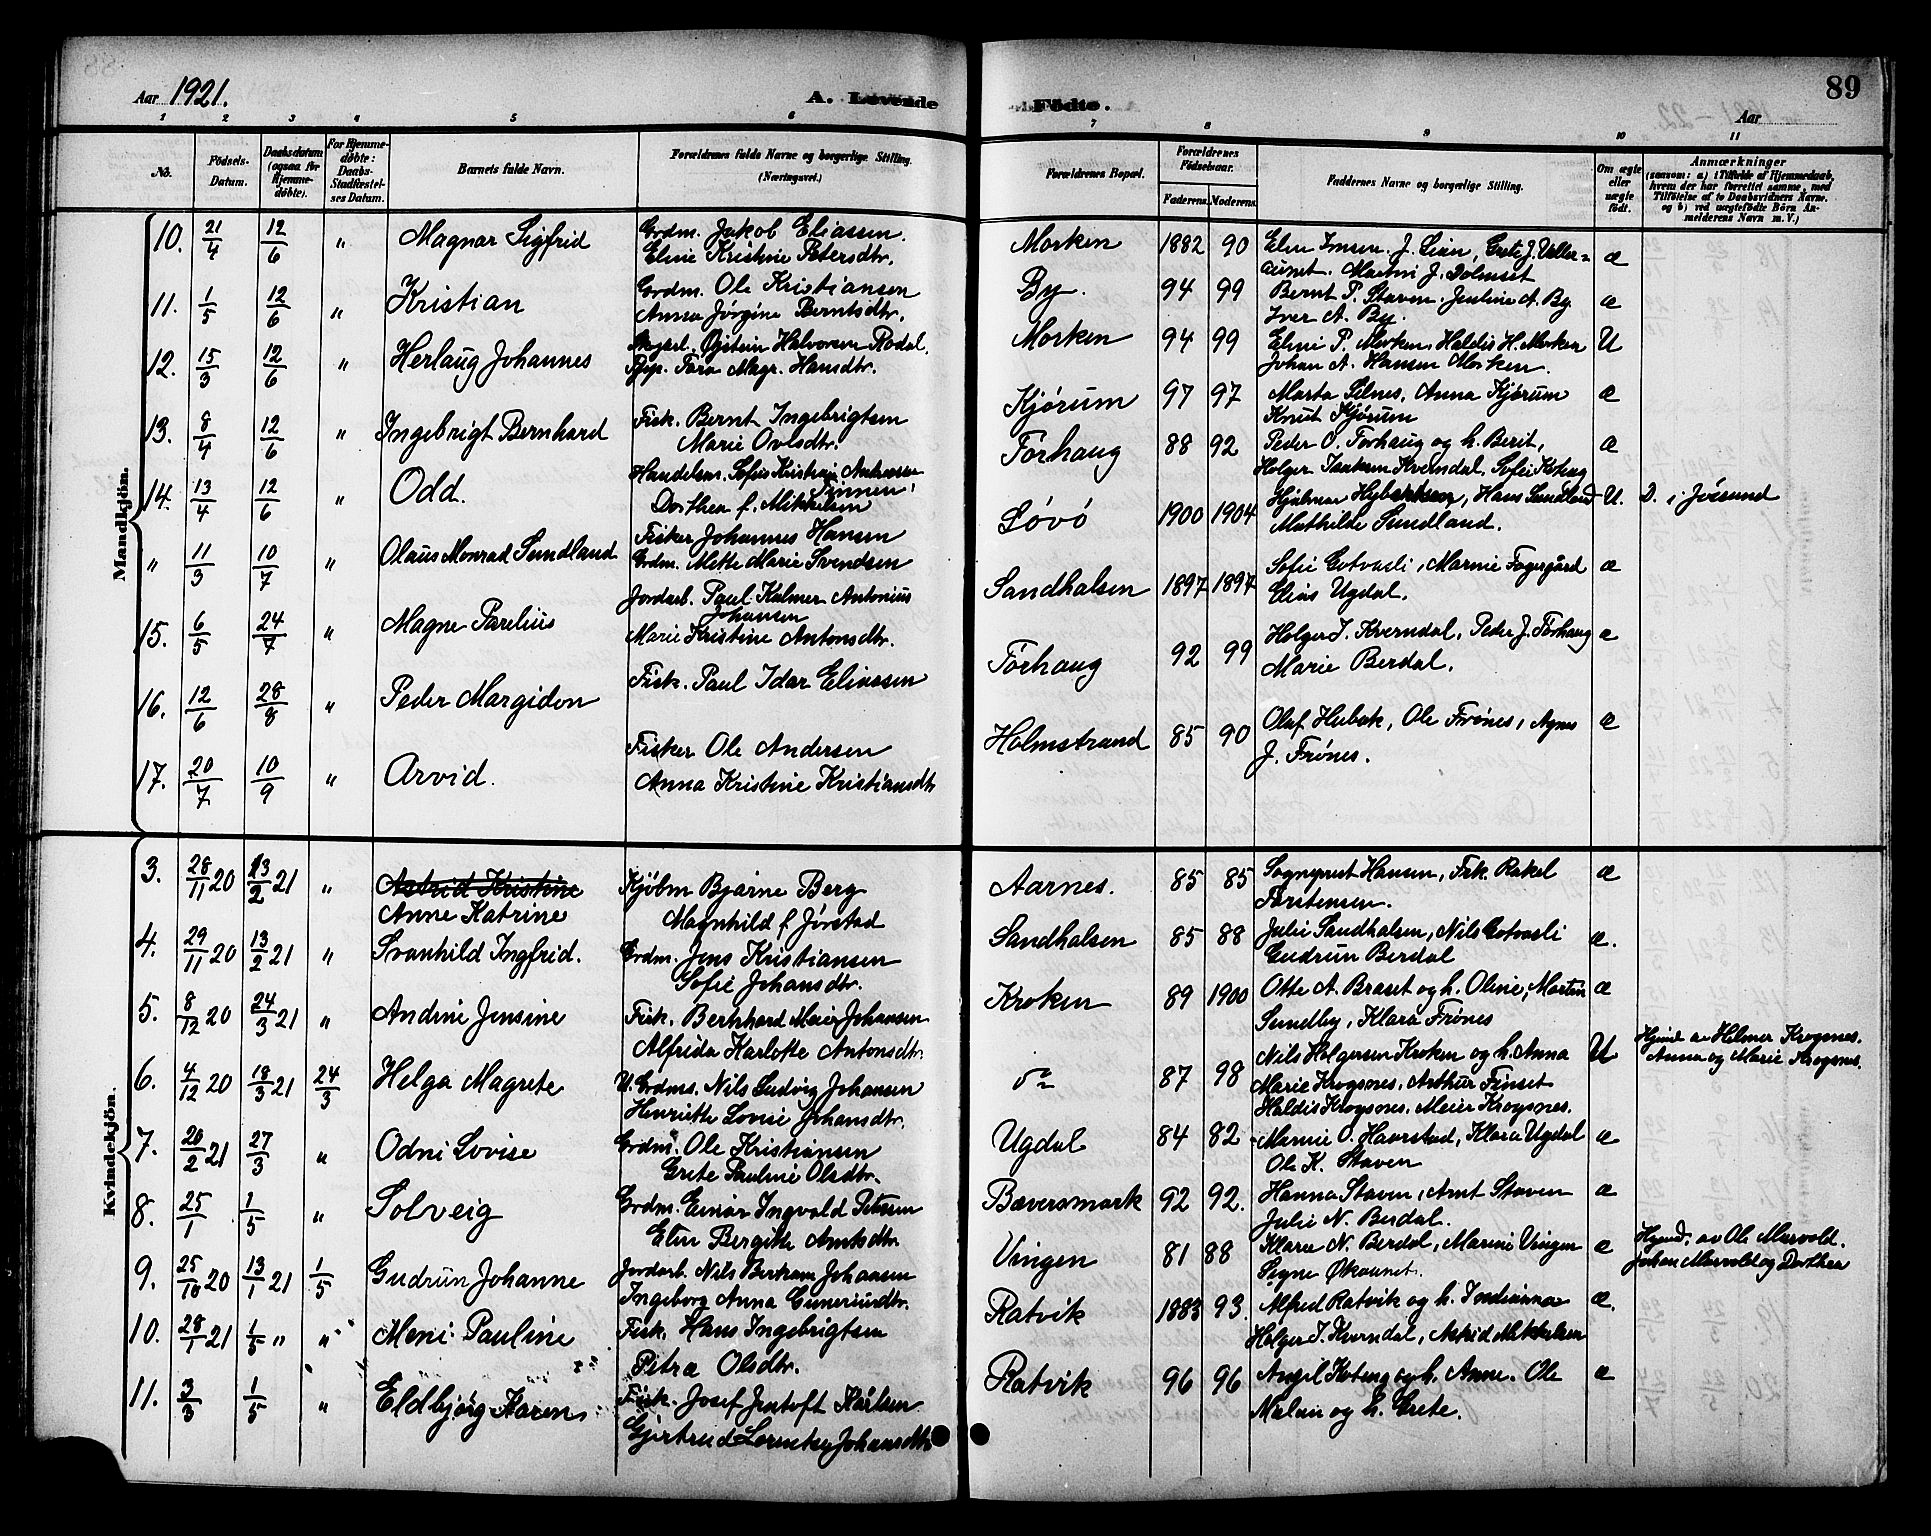 Aar 1921. A. Levende Fødte. Aar 89
1 2 3 4 5 6 7 8 9 10 11
No. Fødsels-Datum. Daabsdatum (ogsaa for Hjemmedøbte). For Hjemmedøbte: Daabs-Stadfæstelses Datum. Barnets fulde Navn. Forældrenes fulde Navne og borgerlige Stilling. (Næringsvei.) Forældrenes Bopæl. Forældrenes Fødselsaar. Faderens. Moderens. Faddernes Navne og borgerlige Stilling. Om ægte eller uægte født. Anmærkninger (saasom: a) i Tilfælde af Hjemmedaab, hvem der har forrettet samme, med Tilføielse af to Daabsvidners Navne. og b) ved uægtefødte Børn Anmelderens Navn m. V.)
Mandkjøn.
10. 21/4 12/6 " Magnar Sigfrid Grdm. Jakob Eliassen. Morken 1882 90 J. Lian, Grete J. Valler= æ
Eline Kristine Petersdtr. aunet. Martin J. Dolmset
11. 1/5 12/6 " Kristian Grdm. Ole Kristiansen By. 94 99 Bernt P. Staven. Justine A. By æ
Anna Jørgine Berntsdtr. Iver A. By.
12. 15/3 12/6 " Herlaug Johannes Øystein Halvorsen Rodal. Morken 94 99 Eline P. Morken, Haldis H. Morken U
Pige. Tara Magr. Hansdtr. Johan A. Hansen Morken.
13. 8/4 12/6 " Ingebrigt Bernhard Fisk. Bernt Ingebrigtsen Kjørum 97 97 Marta Selnes, Anna Kjørum æ
Marie Ovlsdtr. Knut Kjørum
14. 13/4 12/6 " Odd. Handelsm. Sofus Kristian Andreassen Førhaug 88 92 Peder O. Førhaug og h. Berit, æ
Dorthea f. Mikkelsen Holger Isaksen Kverndal, Sofie Koteng
" 11/3 10/7 " Olaus Monrad Sundland Fisker Johannes Hansen Løvø 1900 1904 Hjalmar Hybertsen, Hans Sundland U. D. i Jøssund
Grdm. Mette Marie Svendsen Mathilde Sundland.
15. 6/5 24/7 " Magne Parelius Jordarb. Paul Kalmer Antonius Sandhalsen 1897 1897 Sofie Gotvasli, Marnie Fagergård æ
Johansen Elias Ugdal.
Marie Kristine Antonsdtr.
16. 12/6 28/8 " Peder Margidon Fisk. Paul Idar Eliassen Førhaug 92 99 Holger I. Kverndal, Peder J. Førhaug æ
Marie Berdal.
17. 20/7 10/9 " Arvid. Fisker Ole Andersen Holmstrand 85 90 Olaf Hubak, Ole Frønes, Agnes æ
Anna Kristine Kristiansdtr J. Frønes.
Kvindekjøn.
3. 28/11 20 13/2 21 " Astrid Kristine Kjøbm Bjarne Berg Aarnes. 85 85 Sogneprest Hansen, Frk. Rakel æ
Anne Katrine Magnhild f Jørstad Torstensen.
4. 29/11 20 13/2 21 " Svanhild Ingfrid. Grdm. Jens Kristiansen Sandhalsen 85 88 Julie Sandhalsen, Nils Gotvasli æ.
Sofie Johansdtr. Gudrun Berdal
5. 8/12 20 24/3 21 " Andrine Jensine Fisk. Bernhard Meier Johansen Kroken 89 1900 Otte A. Braset og h. Oline, Morten æ
Alfrida Karlotte Antonsdtr. Sundby, Klara Frønes
6. 4/12 20 18/3 21 24/3 Helga Magrete U. Grdms. Nils Ludvig Johansen do 87 98 Nils Holgersen Kroken og h. Anna U Hjemd. av Helmer Krogsnes.
Henriette Lovise Johansdtr. Marie Krogsnes, Arthur Finset Anna og Marie Krogsnes.
Haldis Krogsnes. Meier Krogsnes.
7. 20/2 21 27/3 " Odni Lovise Grdm. Ole Kristiansen Ugdal 84 82 Marnie O. Haarstad, Klara Ugdal æ
Grete Pauline Olsdtr. Ole K. Staven
8. 25/1 1/5 " Solveig Grdm. Einar Ingvald Petersen Bæversmark 92 92. Hanna Staven, Arnt Staven æ
Elen Bergitte Arntsdtr Julie N. Berdal.
9. 25/10 20 13/1 21 1/5 Gudrun Johanne Jordarb. Nils Bertram Johansen Vingen 81 88 Klara N. Berdal, Marine Vingen æ Hjemd. av Ole Marvold.
Ingeborg Anna Guneriusdtr. Signe Økaunet. Johan Marvold og Dorthea
10. 28/1 21 1/5 " " Meni Pauline Fisk. Hans Ingebrigtsen Ratvik 1883 93. Alfred Ratvik og h. Indianna æ.
Petra Olsdtr. Holger I. Kverndal, Astrid Mikkelsen
11. 3/3 1/5 " Eldbjørg Karen Fisk. Josef Jentoft Karlsen Ratvik 96 96 Angel Koteng og h. Anne. Ole æ
Gjertrud Johansdtr Malan og h. Grete.